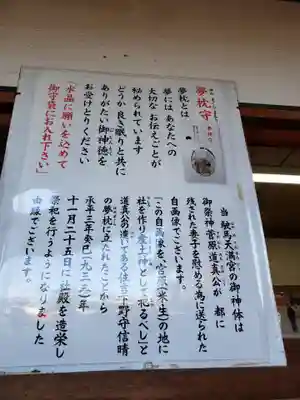 夢枕守
夢枕とは
夢にはあなたへの
大切な お伝えごとが
秘められています
どうか 良き眠りと共に
ありがたい御神徳を
お受けとりください
「水晶に願いを込めて
御守袋にお入れ下さい」
天満宮の御神体は
御祭神菅原道真公が 都に
残された妻子を慰める為に送られた
自画像でございます。
「この自画像を、宮原(米生)の地に
社を作り産土神として祀るべし」と
道真公の
下野守信晴
の夢枕に立たれたことから
承平三年癸巳(九三三)年
十一月二十五日に社殿を造営し
祭祀を行うようになりました
由縁でございます。